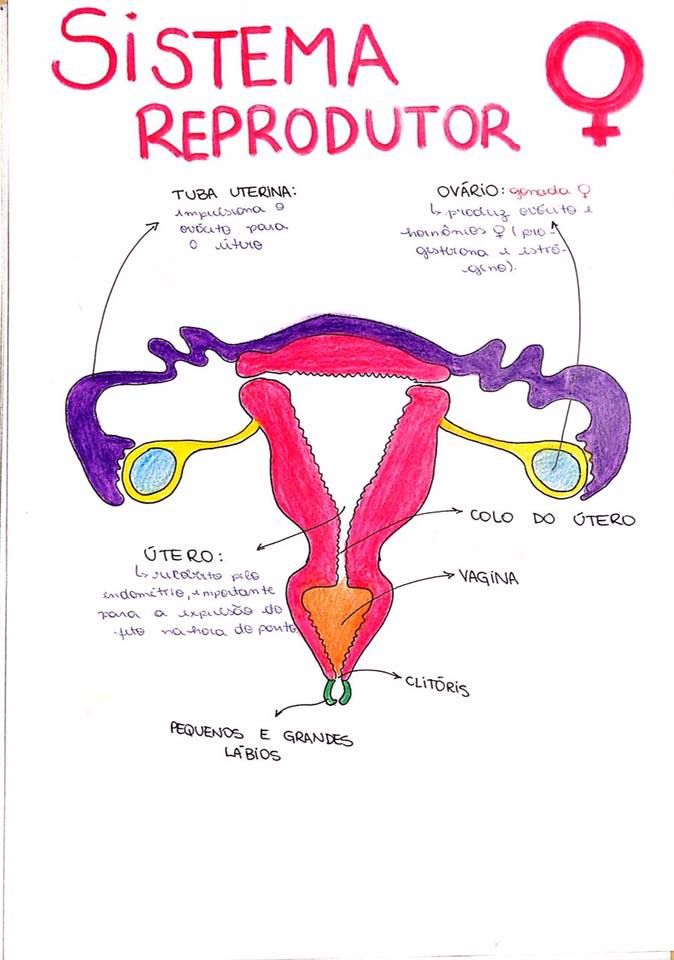 SISTEMA
REPRODUTOR
TUBA UTERINA:
impulsiona o
ovócito para
o útero
OVÁRIO: gonada ♀
↳ produz ovócito e
hormônios ♀ (pro-
gesterona e estró-
geno).
COLO DO ÚTERO
ÚTERO:
↳ recoberto pelo
endométrio, importante
para a expulsão do
feto na hora do parto.
VAGINA
CLITÓRIS
PEQUENOS E GRANDES
LÁBIOS